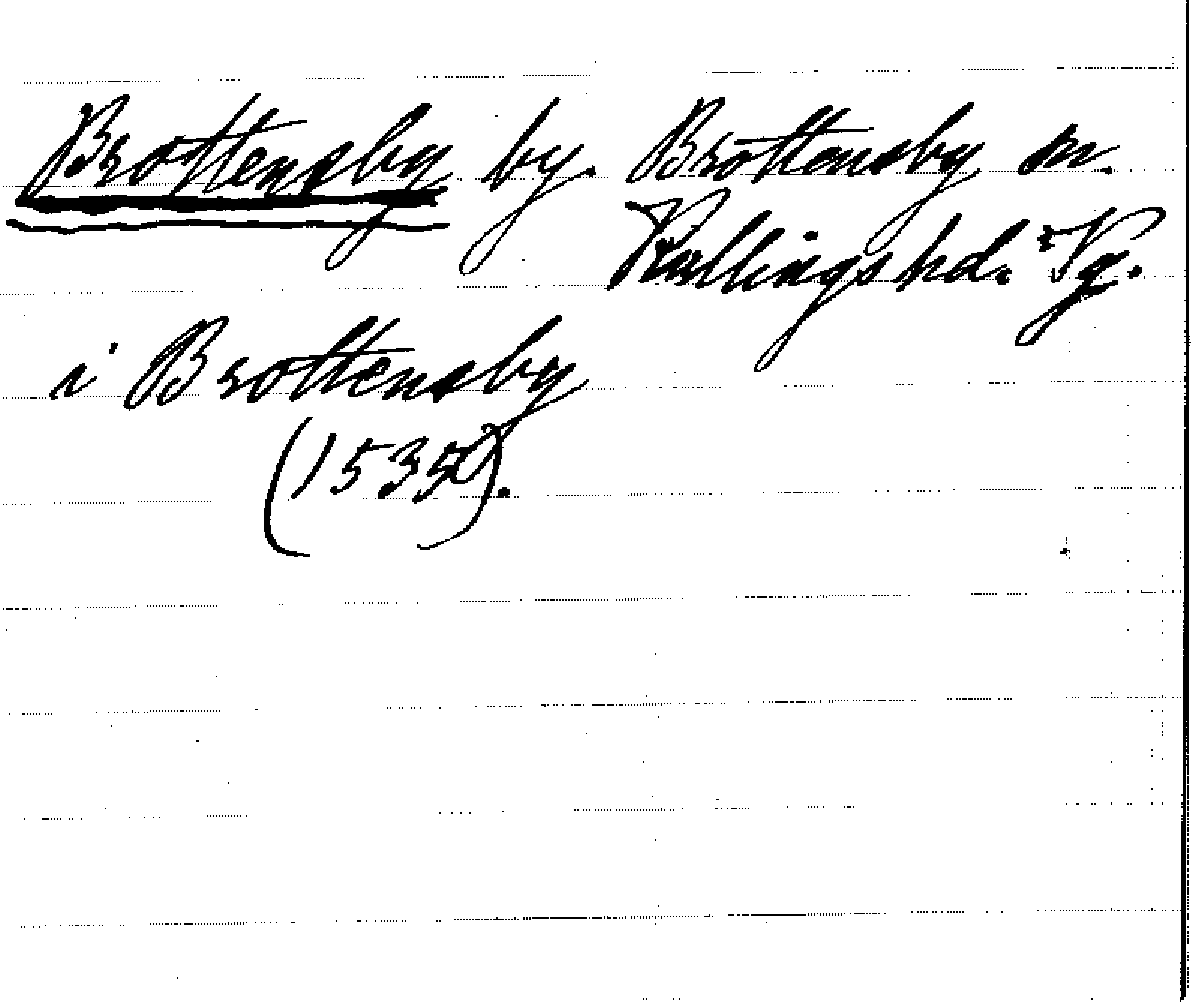 Brottensby by. Brottensby sn.
Kullings hd. Vg.
i Brottensby
(1535).